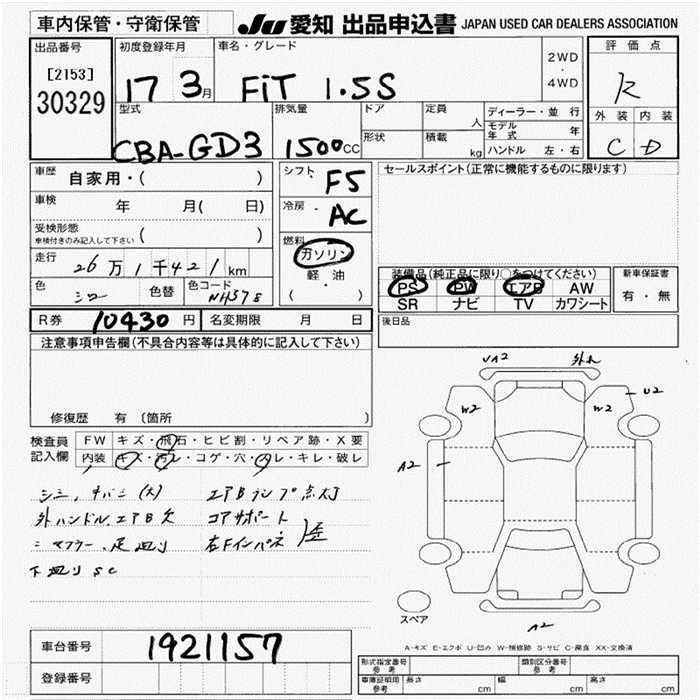 車内保管・守衛保管
JU 愛知 出品申込書 JAPAN USED CAR DEALERS ASSOCIATION
出品番号
[2153]
30329
初度登録年月
17 3月
車名・グレード
FiT 1.5S
2WD
・
4WD
評価点
R
外装 内装
C D
型式
CBA-GD3
排気量
1500cc
ドア
形状
定員
人
積載
kg
ディーラー・並行
モデル年式 年
ハンドル 左・右
車歴 自家用・( )
車検 年 月( 日)
受検形態
車検付きのみ記入して下さい ( )
走行 26万1千421km
色 シロ 色替
色コード NH578
シフト F5
冷房 AC
燃料
ガソリン
軽油
( )
セールスポイント(正常に機能するものに限ります)
装備品(純正品に限り○をつけてください)
PS PW エアB AW
SR ナビ TV カワシート
新車保証書
有・無
R券 10430円
名変期限 月 日
後日品
注意事項申告欄(不具合内容等は具体的に記入して下さい)
修復歴 有 〔箇所 〕
検査員記入欄
FW キズ・飛石・ヒビ割・リペア跡・X要
内装 キズ・汚レ・コゲ・穴・スレ・キレ・破レ
シミ、タバコ(大) エアBランプ点灯
外ハンドル、エアB欠 コアサポート
マフラー、足廻り 右Fインパネ
下廻りSC
UA2
W2
W2
U2
A2
A2
スペア
A-キズ E-エクボ U-凹み W-補修跡 S-サビ C-腐食 XX-交換済
車台番号 1921157
登録番号
形式指定番号
参考
類別区分番号
参考
車庫証明用
参考
長さ cm
幅 cm
高さ cm